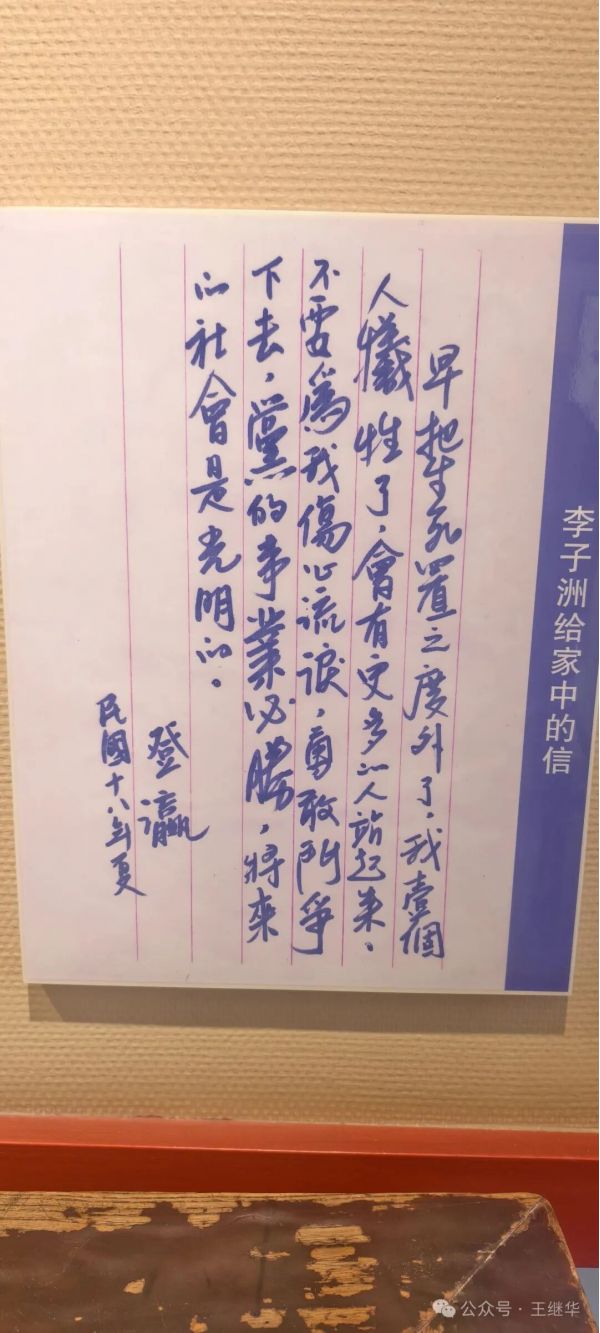 李子洲给家中的信
早把生死置之度外了，我壹個
人犧牲了，會有更多的人站起来，
不要為我傷心流淚，勇敢鬥爭
下去，黨的事業必勝，将来
的社會是光明的。
登瀛
民國十八年夏
公众号·王继华